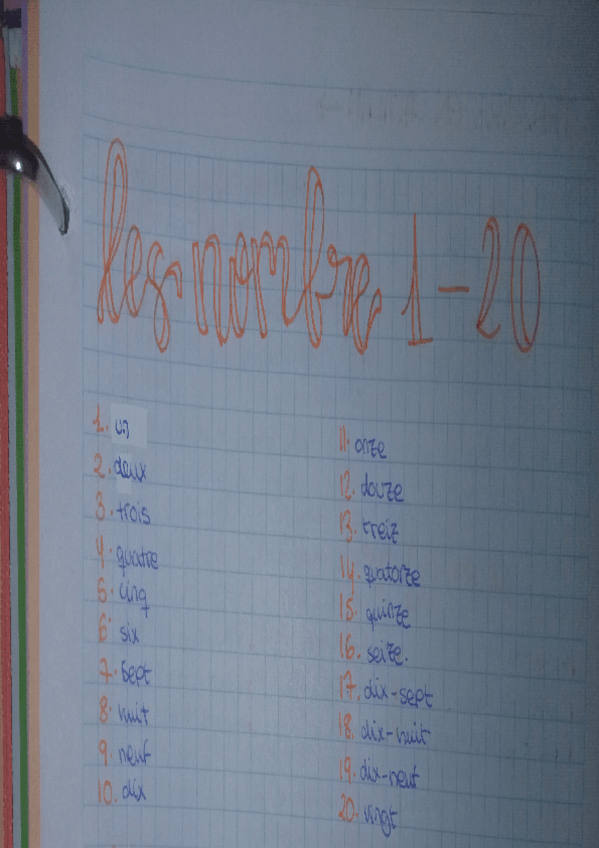 Les nombre 1-20
1. un
2. deux
3. trois
4. quatre
5. cinq
6. six
7. Sept
8. huit
9. neuf
10. dix
11. onze
12. douze
13. treiz
14. quatorze
15. quinze
16. seize.
17. dix-sept
18. dix-huit
19. dix-neuf
20. vingt